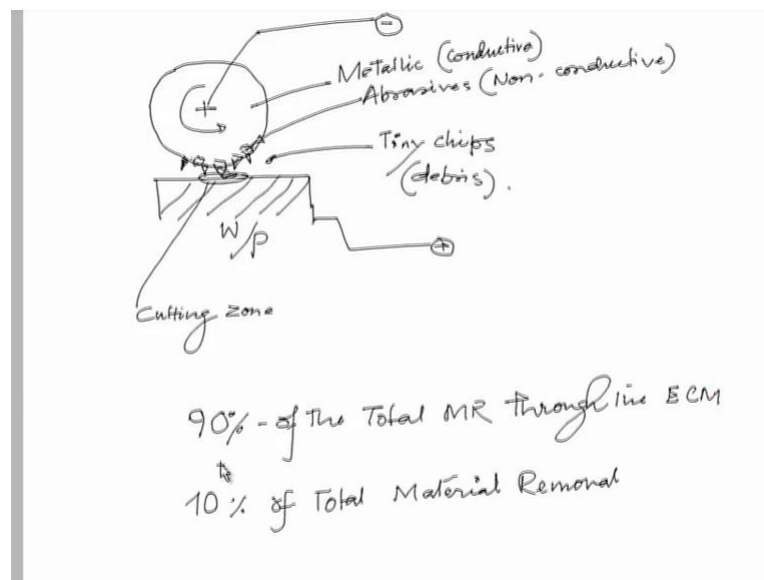 −
Metallic (conductive)
Abrasives (Non-conductive)
+
Tiny chips
(debris).
W/P
+
Cutting zone
90% - of the Total MR through ECM
10% of Total Material Removal